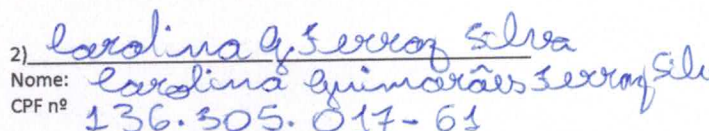 2) Carolina G Ferraz Silva
Nome: Carolina Guimarães Ferraz Sil
CPF nº 136.305.017-61